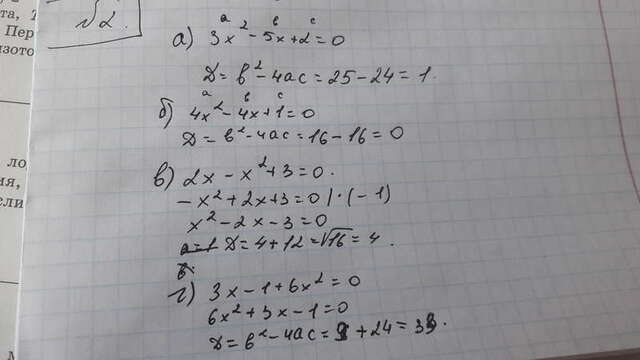 та,
Пер
ло
ия,
сли
N2.
a b c
а) 3x² - 5x + 2 = 0
D = b² - 4ac = 25 - 24 = 1.
a b c
б) 4x² - 4x + 1 = 0
D = b² - 4ac = 16 - 16 = 0
в) 2x - x² + 3 = 0.
-x² + 2x + 3 = 0 | · (-1)
x² - 2x - 3 = 0
D = 4 + 12 = √16 = 4.
г) 3x - 1 + 6x² = 0
6x² + 3x - 1 = 0
D = b² - 4ac = 9 + 24 = 33.